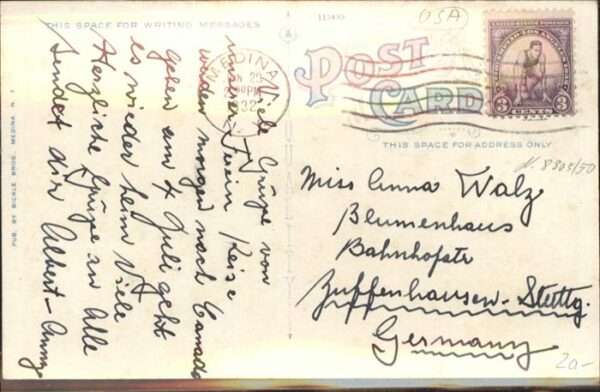 THIS SPACE FOR WRITING MESSAGES
113400
USA
POST
CARD
MEDINA
JUN 29
PM
32
3 CENTS 3
THIS SPACE FOR ADDRESS ONLY
Viele Grüße von
unserer Verein Reise
werden morgen nach Canada
gehen am 4 Juli geht
es wieder heim Viele
Herzliche Grüße an Alle
sendet dir Albert - Anny
Miss Anna Walz
Blumenhaus
Bahnhofstr
Zuffenhausen - Stuttg.
Germany
2a-
PUB. BY SICKLE BROS. MEDINA, N. Y.